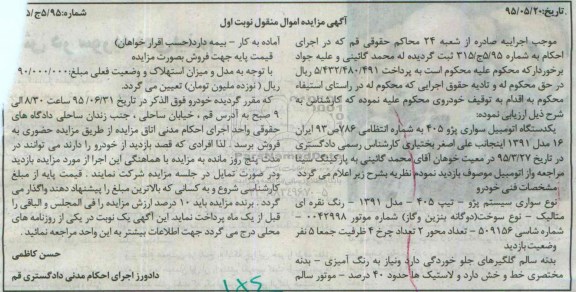 تاریخ: ۹۵/۰۵/۲۰
شماره: ۵/۹۵ج/۵
آگهی مزایده اموال منقول نوبت اول
موجب اجراییه صادره از شعبه ۲۴ محاکم حقوقی قم که در اجرای
احکام به شماره ۵/۹۵ج/۳۱۵ ثبت گردیده له محمد گائینی و علیه جواد
برخوردار که محکوم علیه محکوم است به پرداخت ۵/۴۳۲/۴۸۰/۴۹۱ ریال
در حق محکوم له و تادیه حقوق اجرایی که محکوم له در راستای استیفاء
محکوم به اقدام به توقیف خودروی محکوم علیه نموده که کارشناس به
شرح ذیل ارزیابی نموده:
یکدستگاه اتومبیل سواری پژو ۴۰۵ به شماره انتظامی ۷۸۶ص۹۳ ایران
۱۶ مدل ۱۳۹۱ اینجانب علی اصغر بختیاری کارشناس رسمی دادگستری
در تاریخ ۹۵/۳/۲۷ در معیت خوهان آقای محمد گائینی به پارکینگ سینا
مراجعه واز اتومبیل موصوف بازدید نموده نظریه بشرح زیر اعلام می گردد
مشخصات فنی خودرو
نوع سواری سیستم پژو - تیپ ۴۰۵ - مدل ۱۳۹۱ - رنگ نقره ای
متالیک - نوع سوخت(دوگانه بنزین وگاز) شماره موتور ۰۰۴۲۹۹۸ -
شماره شاسی ۵۰۹۱۵۶ - تعداد محور ۲ تعداد چرخ ۴ ظرفیت جمعا ۵ نفر
وضعیت بازدید
بدنه سالم گلگیرهای جلو خوردگی دارد ونیاز به رنگ آمیزی - بدنه
مختصری خط و خش دارد و لاستیک ها حدود ۴۰ درصد - موتور سالم
آماده به کار - بیمه دارد(حسب اقرار خواهان)
قیمت پایه جهت فروش بصورت مزایده
با توجه به مدل و میزان استهلاک و وضعیت فعلی مبلغ: ۹۰/۰۰۰/۰۰۰
ریال ( نوزده ملیون تومان) تعیین می گردد.
که مقرر گردیده خودرو فوق الذکر در تاریخ ۹۵/۰۶/۳۱ ساعت ۸/۳۰ الی
۹ صبح به آدرس قم ، خیابان ساحلی ، جنب زندان ساحلی دادگاه های
حقوقی واحد اجرای احکام مدنی اتاق مزایده از طریق مزایده حضوری به
فروش برسد . لذا افرادی که قصد بازدید از خودرو را دارند می توانند در
مدت پنج روز مانده به مزایده با هماهنگی این اجرا از مورد مزایده بازدید
ودر صورت تمایل در جلسه مزایده شرکت نمایند . قیمت پایه از مبلغ
کارشناسی شروع و به کسانی که بالاترین مبلغ را پیشنهاد دهند واگذار می
گردد . برنده مزایده باید ۱۰ درصد ارزش مزایده را فی المجلس و الباقی را
قبل از یک ماه پرداخت نماید این آگهی یک نوبت در یکی از روزنامه های
محلی درج می گردد جهت اطلاعات بیشتر به این واحد مراجعه نمائید.
حسن کاظمی
دادورز اجرای احکام مدنی دادگستری قم